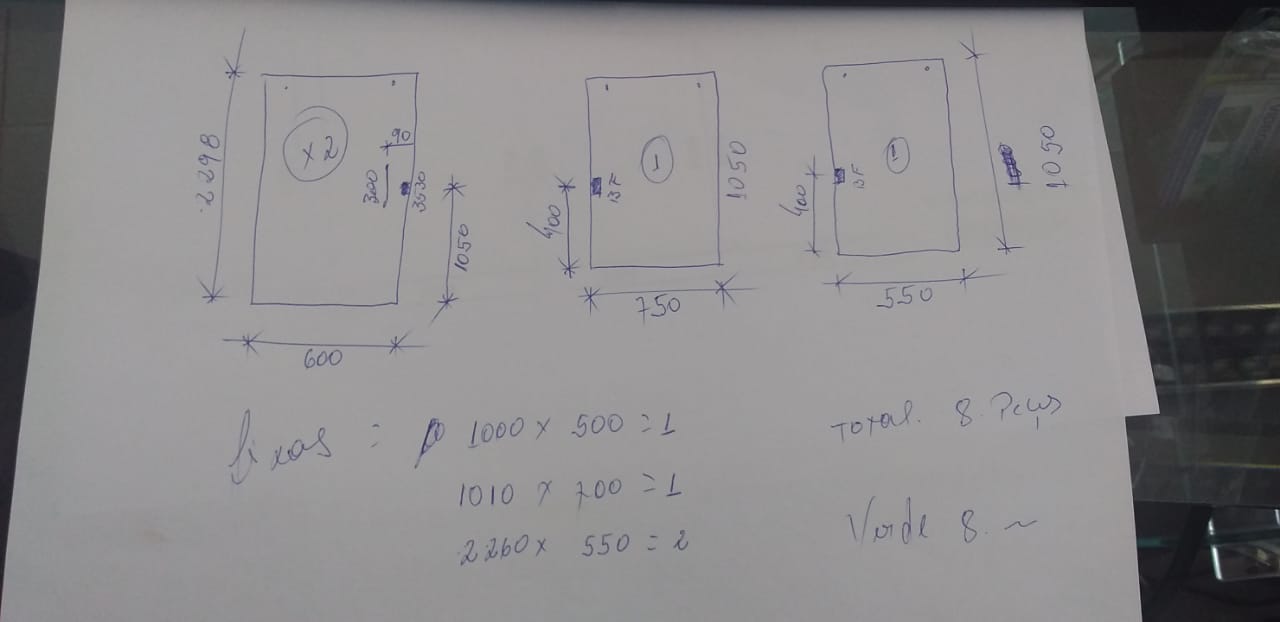 2298
x 2
90
300
3530
1050
600
400
BF
1
1050
750
400
BF
1
1050
550
fixas = 1000 x 500 = 1
1010 x 700 = 1
2260 x 550 = 2
Total. 8. Peças
Verde 8.